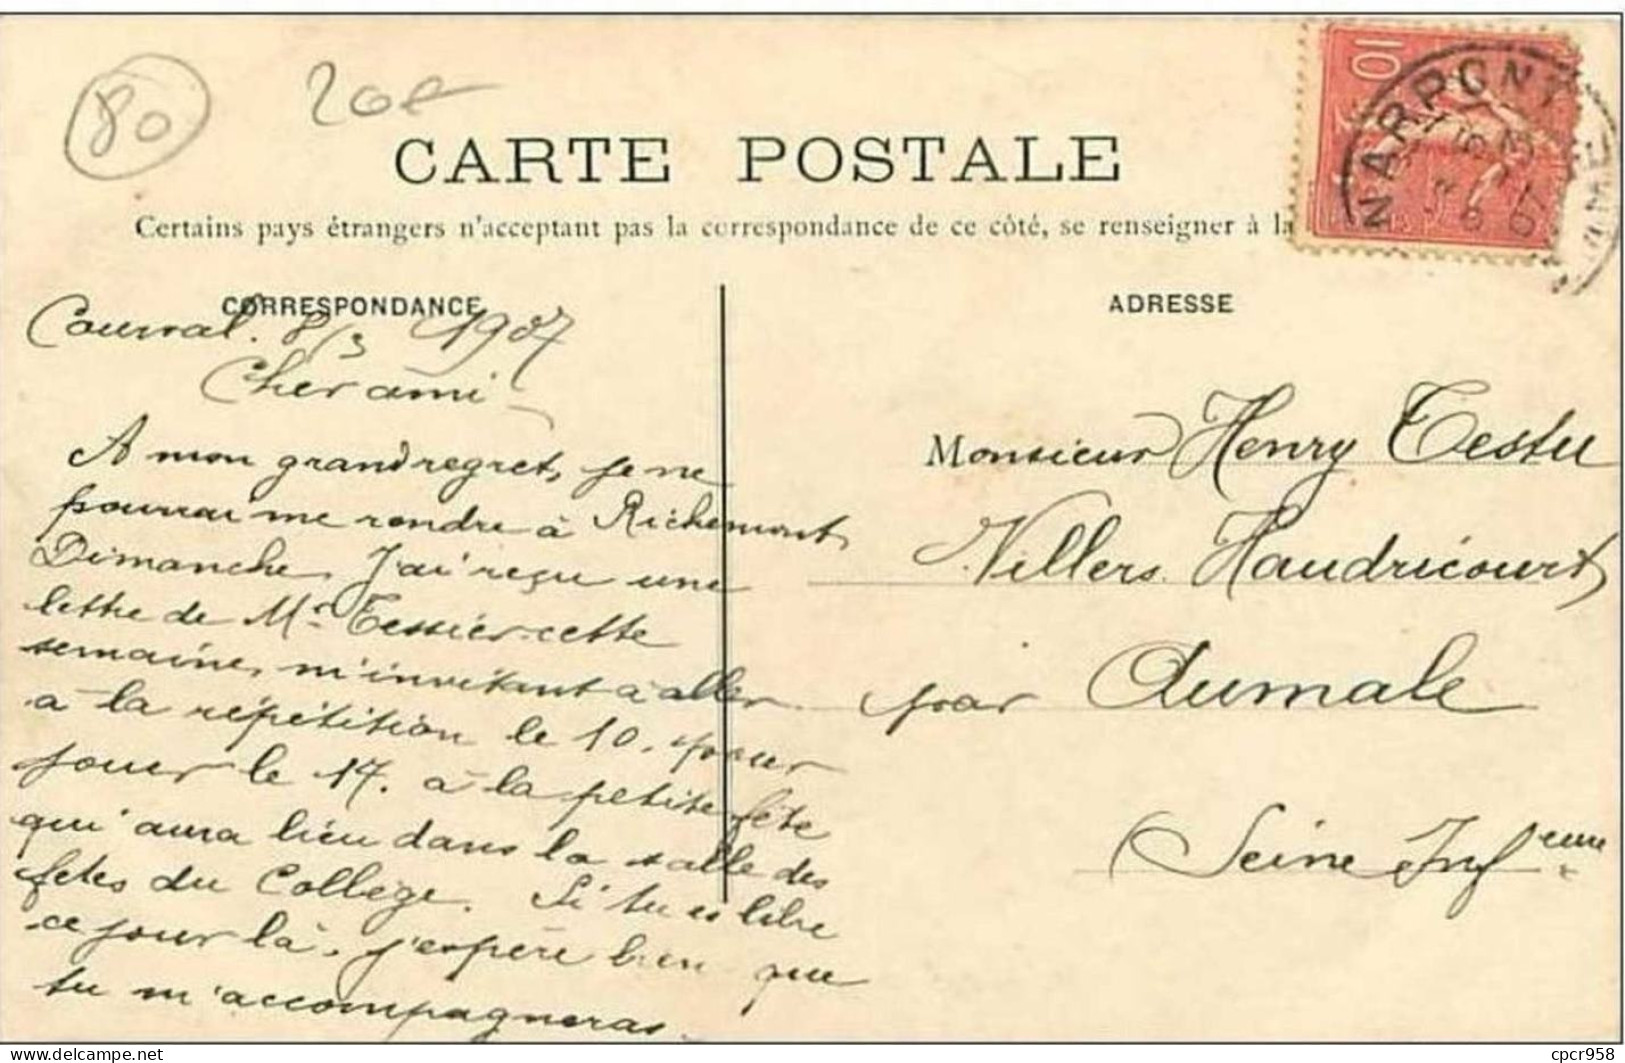 80
20f
CARTE POSTALE
Certains pays étrangers n'acceptant pas la correspondance de ce côté, se renseigner à la
10
NARPONT
8 3
07
SOMME
CORRESPONDANCE
ADRESSE
Courval. 8/3 1907
Cher ami
A mon grand regret, je ne
pourrai me rendre à Richemont
Dimanche, J'ai reçu une
lettre de Mr Tessier cette
semaine, m'invitant à aller
a la répétition le 10. pour
jouer le 17. à la petite fête
qui aura lieu dans la salle des
fetes du Collège. Si tu es libre
ce jour là, j'espère bien que
tu m'accompagneras.
Monsieur Henry Testu
Villers Haudricourt
par Aumale
(Seine Infeure
cpcr958